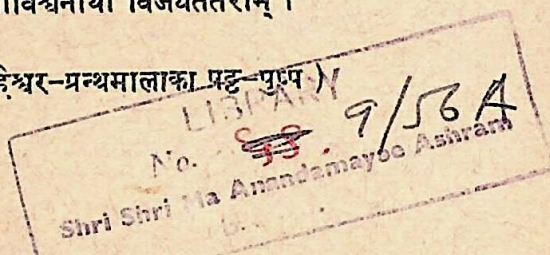 विश्वनाथो विजयतेतराम् ।
हेश्वर-ग्रन्थमालाका षष्ठ-पुष्प )
LIBRARY
No. 9/56 A
Shri Shri Ma Anandamayee Ashram